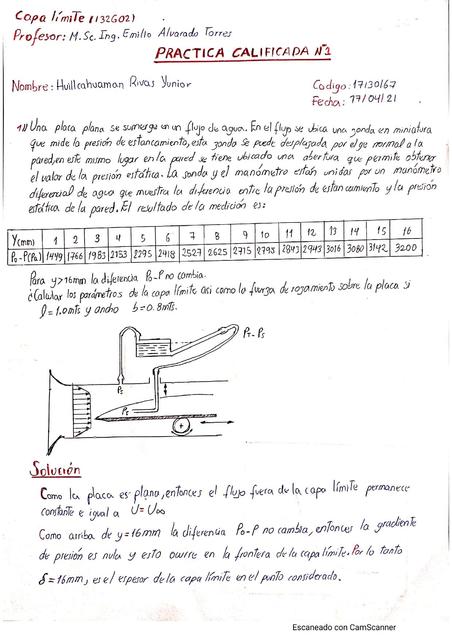 Copa límite (132G02)
Profesor: M.Sc. Ing. Emilio Alvarado Torres
PRACTICA CALIFICADA Nº1
Nombre: Huillcahuaman Rivas Yunior
Codigo: 17130167
Fecha: 17/04/21
1// Una placa plana se sumerge en un flujo de agua. En el flujo se ubica una sonda en miniatura
que mide la presión de estancamiento, esta sonda se puede desplazar, por el eje normal a la
pared, en este mismo lugar en la pared se tiene ubicado una abertura que permite obtener
el valor de la presión estática. La sonda y el manómetro están unidas por un manómetro
diferencial de agua que muestra la diferencia entre la presión de estancamiento y la presión
estática de la pared. El resultado de la medición es:
Y(mm) 1 2 3 4 5 6 7 8 9 10 11 12 13 14 15 16
Po-P(Pa) 1449 1766 1983 2153 2295 2418 2527 2625 2715 2793 2943 3016 3080 3142 3200
Para y>16mm la diferencia Po-P no cambia.
¿Calular los parámetros de la capa límite asi como la fuerza de rozamiento sobre la placa si
l=1.0mts y ancho b=0.8mts.
PT-PS
Ps
Solución
Como la placa es plana, entonces el flujo fuera de la capa límite permanece
constante e igual a U=U∞
Como arriba de y=16mm la diferencia Po-P no cambia, entonces la gradiente
de presión es nula y esto ocurre en la frontera de la capa límite. Por lo tanto
δ=16mm, es el espesor de la capa límite en el punto considerado.
Escaneado con CamScanner